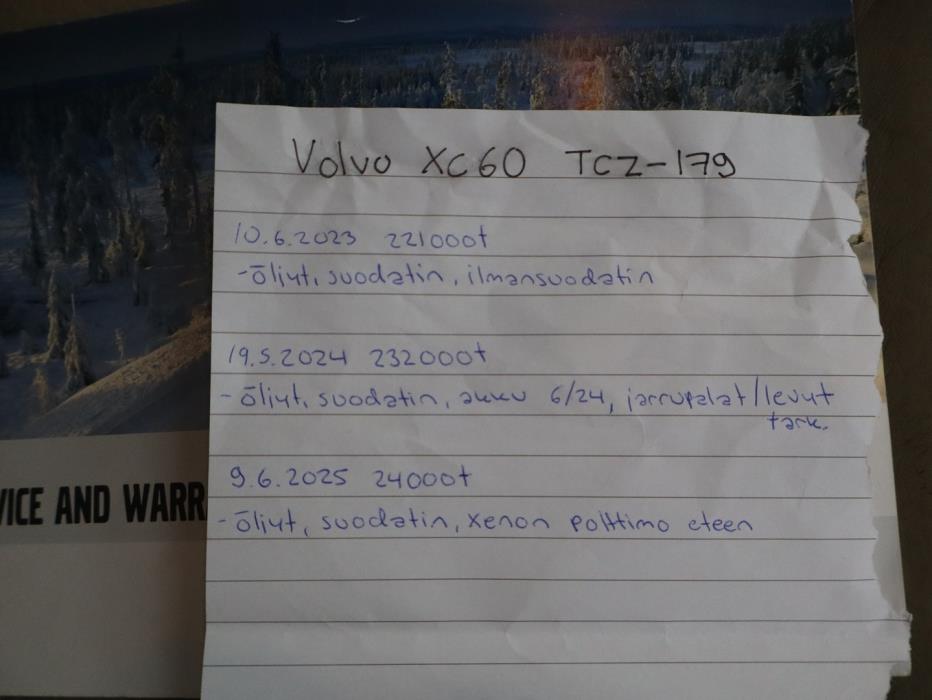 Volvo XC60 TCZ-179
10.6.2023 221000t
-öljyt, suodatin, ilmansuodatin
19.5.2024 232000t
-öljyt, suodatin, akku 6/24, jarrupalat/levyt
tark.
9.6.2025 24000t
-öljyt, suodatin, xenon polttimo eteen
VICE AND WARR